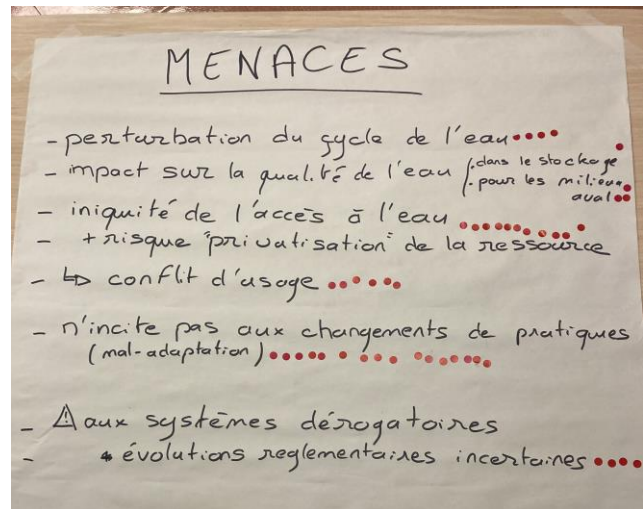 MENACES
- perturbation du cycle de l'eau
- impact sur la qualité de l'eau /. dans le stockage
/. pour les milieux
aval
- iniquité de l'accès à l'eau
- + risque "privatisation" de la ressource
- ↳ conflit d'usage
- n'incite pas aux changements de pratiques
(mal-adaptation)
- ⚠ aux systèmes dérogatoires
- évolutions reglementaires incertaines